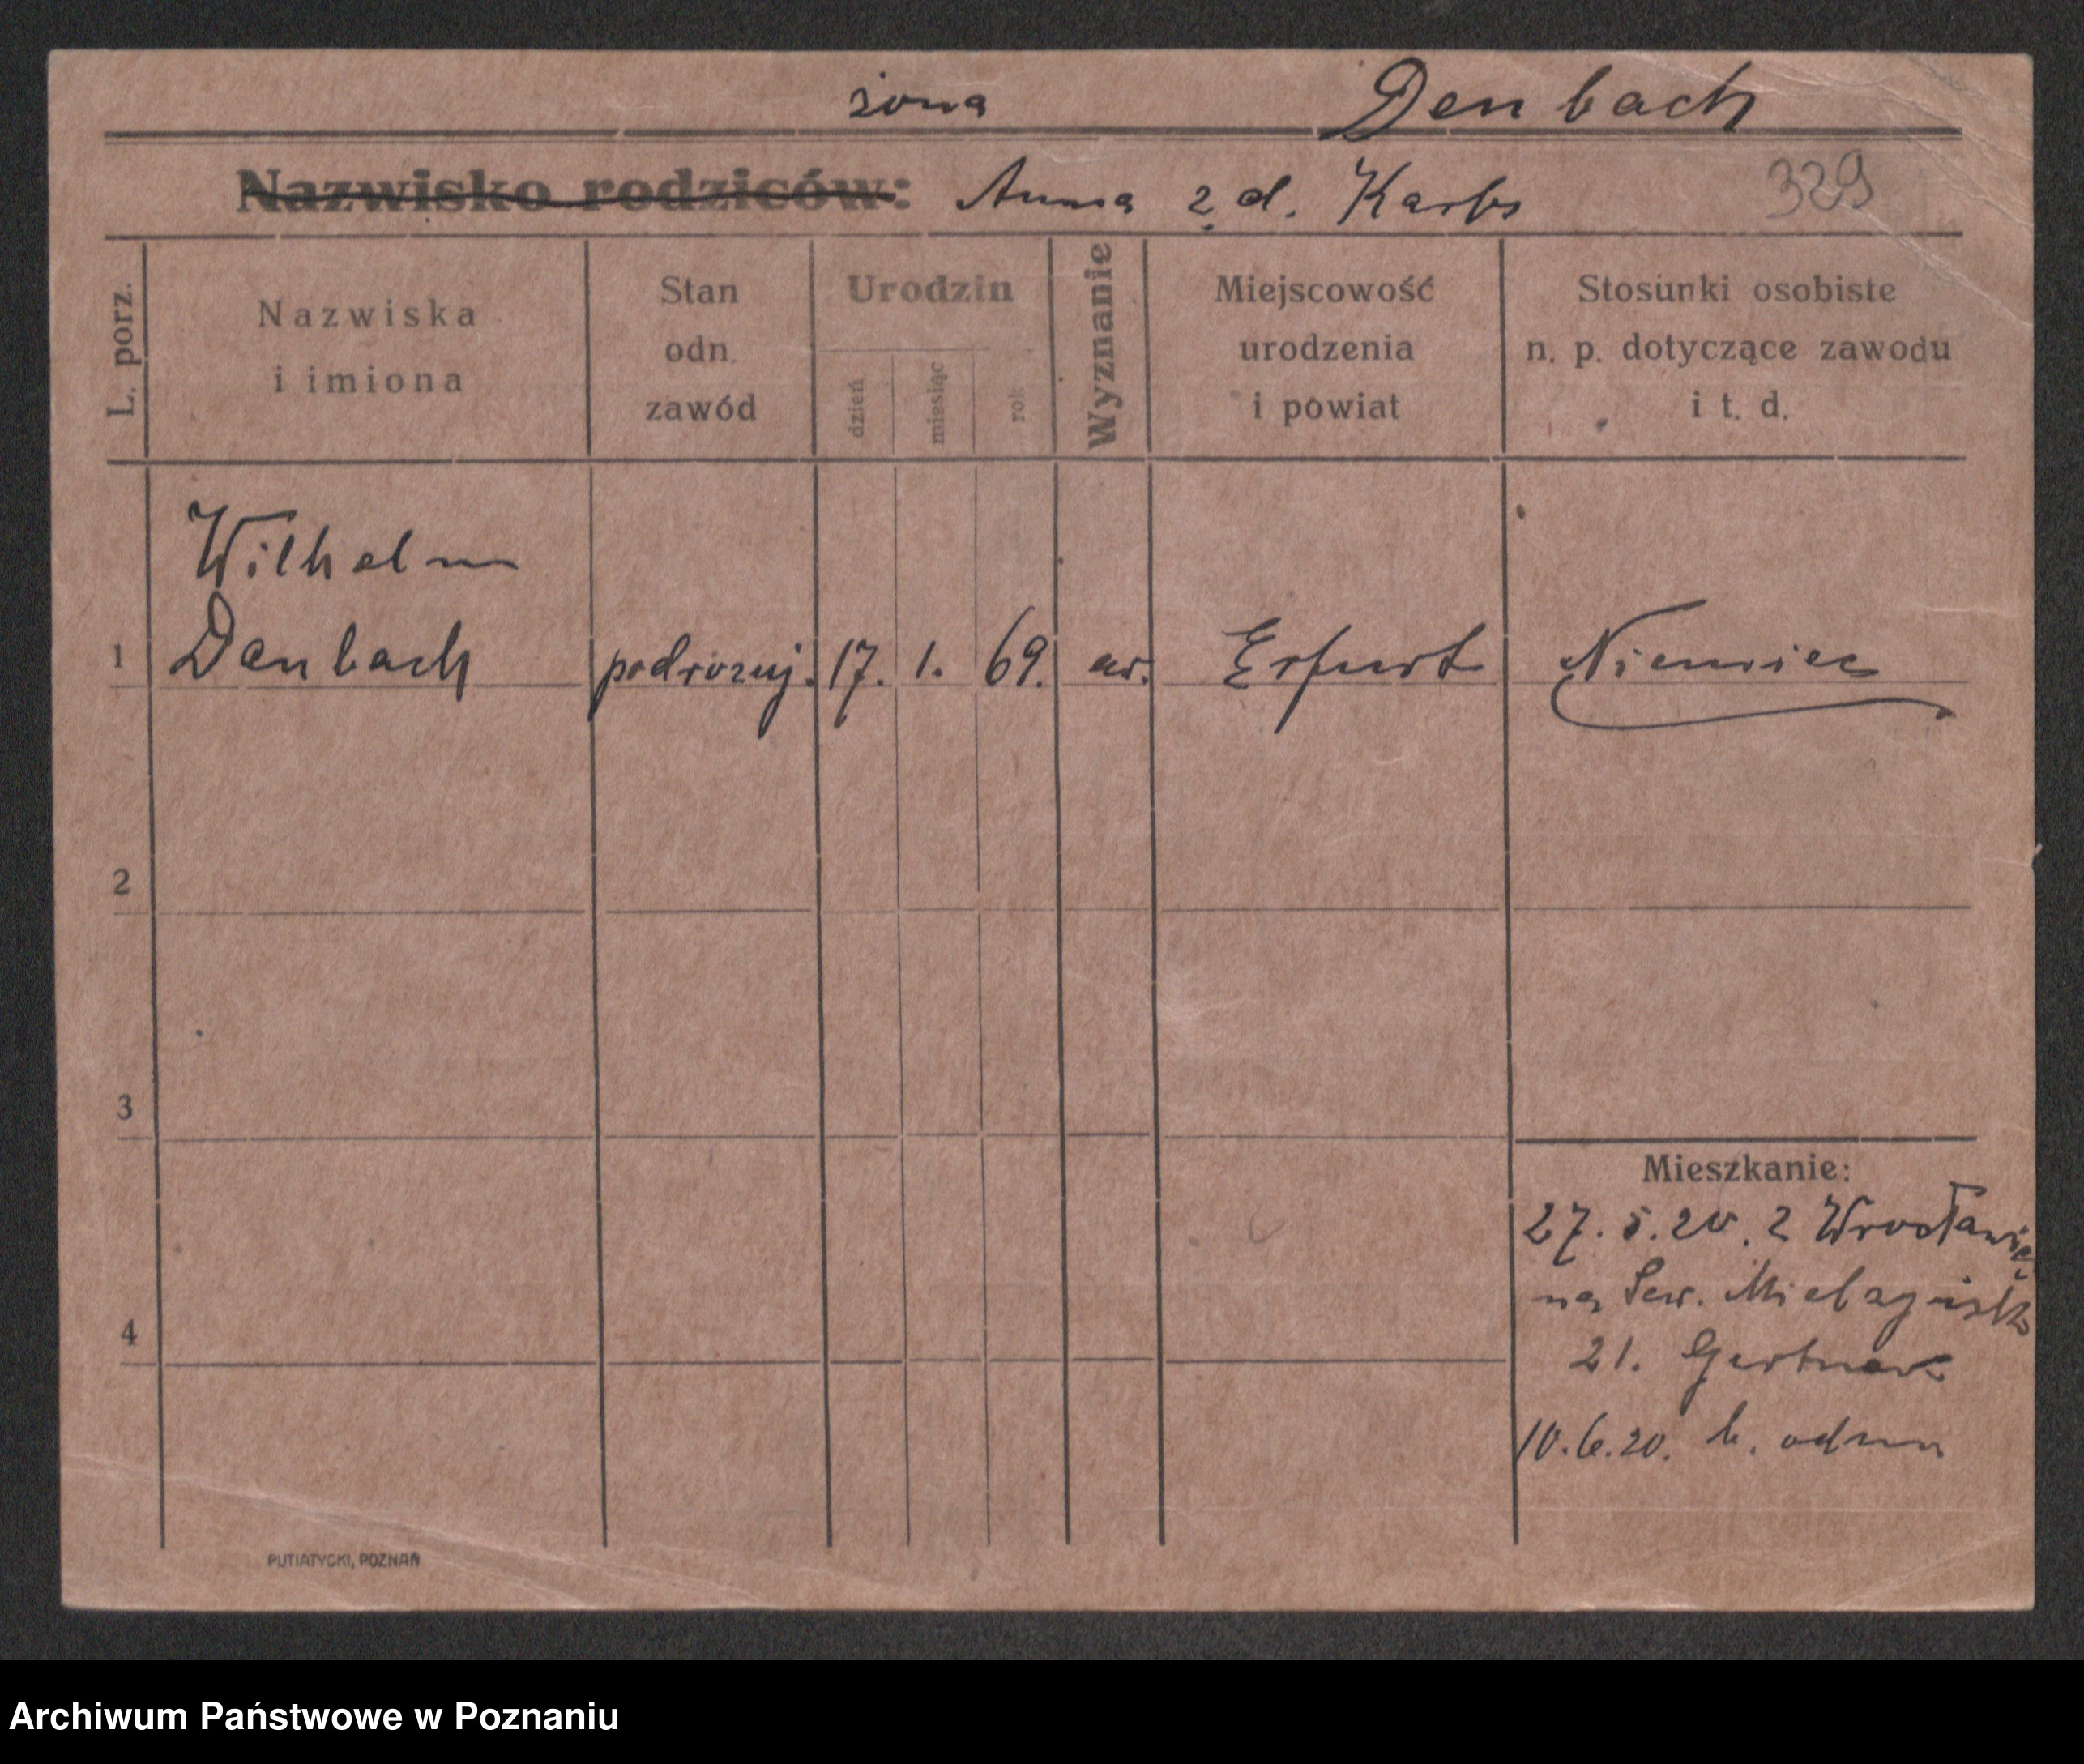 żona Denbach
Nazwisko rodziców: Anna z d. Karbs 329
L. porz.
Nazwiska
i imiona
Stan
odn.
zawód
Urodzin
dzień
miesiąc
rok
Wyznanie
Miejscowość
urodzenia
i powiat
Stosunki osobiste
n. p. dotyczące zawodu
i t. d.
Wilhelm
1 Denbach podrozuj. 17. 1. 69. ew. Erfurt Niemiec
2
3
Mieszkanie:
27.5.20. z Wrocławia
na Sew. Mielzyńsk
4
21. Gertner
10.6.20. b. odm
PUTIATYCKI, POZNAŃ
Archiwum Państwowe w Poznaniu